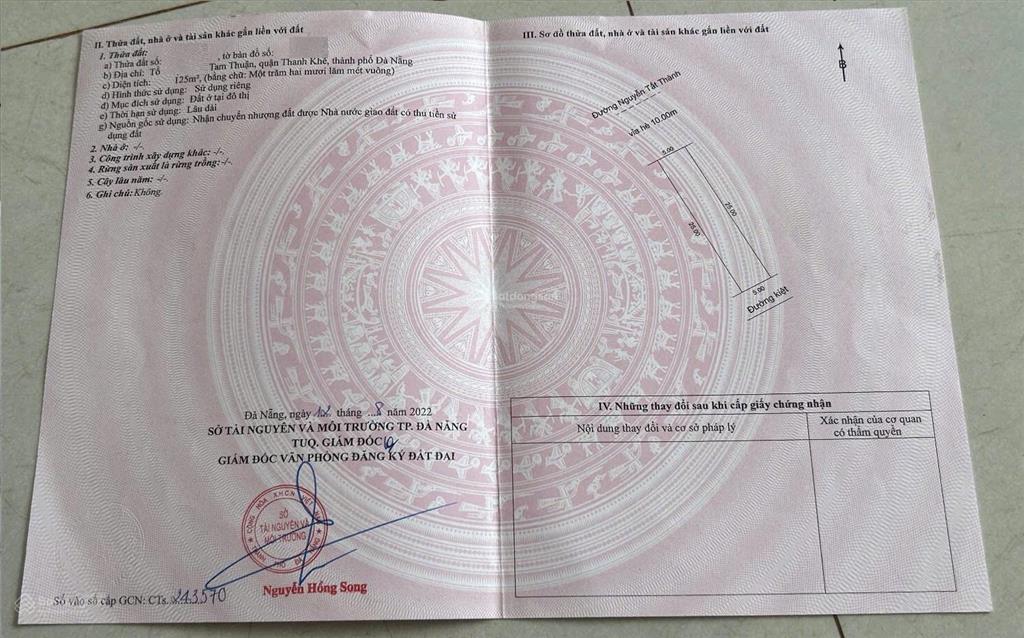 II. Thửa đất, nhà ở và tài sản khác gắn liền với đất
1. Thửa đất:
a) Thửa đất số: , tờ bản đồ số:
b) Địa chỉ: Tổ Tam Thuận, quận Thanh Khê, thành phố Đà Nẵng
c) Diện tích: 125m², (bằng chữ: Một trăm hai mươi lăm mét vuông)
d) Hình thức sử dụng: Sử dụng riêng
đ) Mục đích sử dụng: Đất ở tại đô thị
e) Thời hạn sử dụng: Lâu dài
g) Nguồn gốc sử dụng: Nhận chuyển nhượng đất được Nhà nước giao đất có thu tiền sử
dụng đất
2. Nhà ở: -/-.
3. Công trình xây dựng khác: -/-.
4. Rừng sản xuất là rừng trồng: -/-.
5. Cây lâu năm: -/-.
6. Ghi chú: Không.
Đà Nẵng, ngày 12 tháng 8 năm 2022
SỞ TÀI NGUYÊN VÀ MÔI TRƯỜNG TP. ĐÀ NẴNG
TUQ. GIÁM ĐỐC
GIÁM ĐỐC VĂN PHÒNG ĐĂNG KÝ ĐẤT ĐAI
CỘNG HÒA X.H.C.N VIỆT NAM
SỞ
TÀI NGUYÊN VÀ
MÔI TRƯỜNG
THÀNH PHỐ ĐÀ NẴNG
Nguyễn Hồng Song
Số vào sổ cấp GCN: CTs. 243570
III. Sơ đồ thửa đất, nhà ở và tài sản khác gắn liền với đất
B
Đường Nguyễn Tất Thành
vỉa hè 10.00m
5.00
25.00
25.00
5.00
Đường kiệt
IV. Những thay đổi sau khi cấp giấy chứng nhận
Nội dung thay đổi và cơ sở pháp lý
Xác nhận của cơ quan
có thẩm quyền